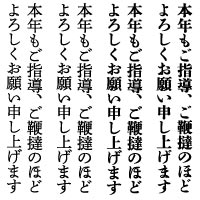 本年もご指導、ご鞭撻のほど
よろしくお願い申し上げます
本年もご指導、ご鞭撻のほど
よろしくお願い申し上げます
本年もご指導、ご鞭撻のほど
よろしくお願い申し上げます
本年もご指導、ご鞭撻のほど
よろしくお願い申し上げます